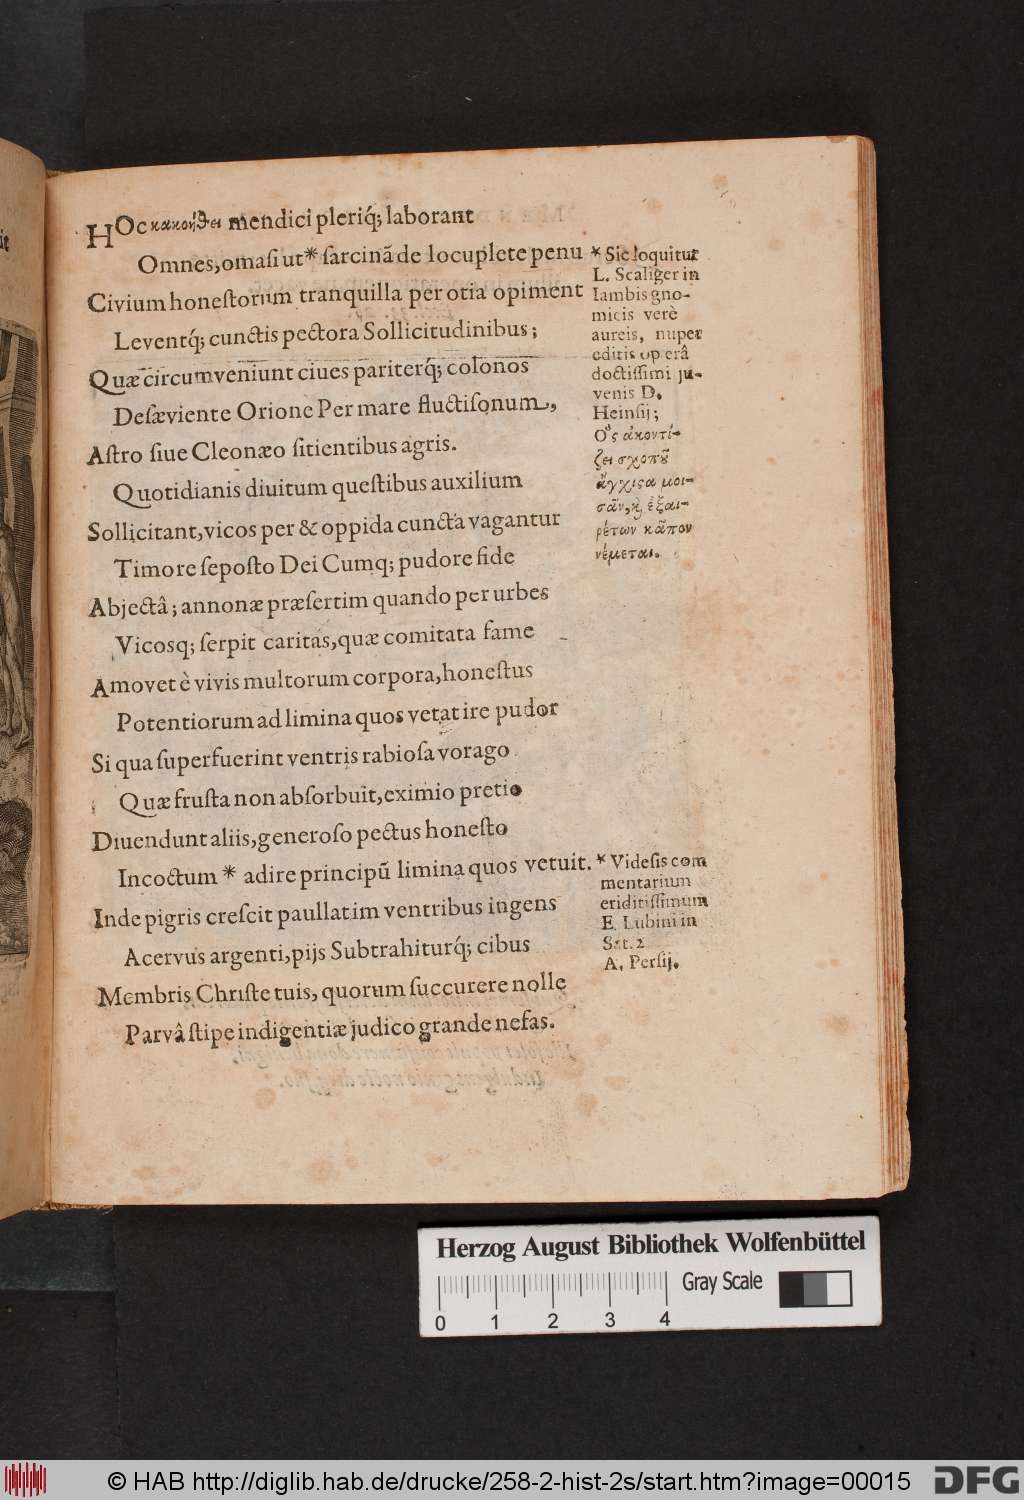 HOc κακοήθει mendici pleriq́; laborant
Omnes, omasi ut* ſarcinã de locuplete penu
Civium honeſtorum tranquilla per otia opiment
Leventq́; cunctis pectora Sollicitudinibus;
Quæ circumveniunt ciues pariterq́; colonos
Deſæviente Orione Per mare fluctiſonum,
Aſtro ſiue Cleonæo ſitientibus agris.
Quotidianis diuitum queſtibus auxilium
Sollicitant, vicos per & oppida cuncta vagantur
Timore ſepoſto Dei Cumq; pudore fide
Abjectâ; annonæ præſertim quando per urbes
Vicosq; ſerpit caritas, quæ comitata fame
Amovet è vivis multorum corpora, honeſtus
Potentiorum ad limina quos vetat ire pudor
Si qua ſuperfuerint ventris rabioſa vorago
Quæ fruſta non abſorbuit, eximio pretio
Diuendunt aliis, generoſo pectus honeſto
Incoctum * adire principũ limina quos vetuit.
Inde pigris creſcit paullatim ventribus ingens
Acervus argenti, pijs Subtrahiturq́; cibus
Membris Chriſte tuis, quorum ſuccurere nolle
Parvâ ſtipe indigentiæ judico grande nefas.
* Sic loquitur
L. Scaliger in
Iambis gno-
micis verè
aureis, nuper
editis operâ
doctiſſimi ju-
venis D.
Heinſij;
Ὃς ἀκοντί-
ζει σχοπȣ͂
ἄγχιϛα μοι-
σᾶν, κ̀ ἐξαι-
ρέτων κᾶπον
νέμεται.
* Videſis com
mentarium
eriditiſſimum
E. Lubini in
Sat. 2
A. Perſij.
Herzog August Bibliothek Wolfenbüttel
Gray Scale
0 1 2 3 4
© HAB http://diglib.hab.de/drucke/258-2-hist-2s/start.htm?image=00015
DFG